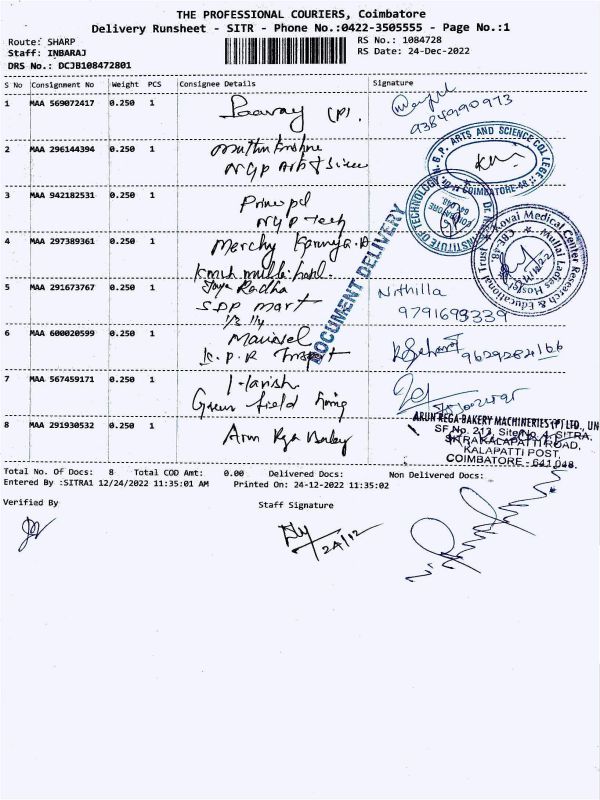 THE PROFESSIONAL COURIERS, Coimbatore
Delivery Runsheet - SITR - Phone No.:0422-3505555 - Page No.:1
Route: SHARP
Staff: INBARAJ
DRS No.: DCJB108472801
RS No.: 1084728
RS Date: 24-Dec-2022
S No Consignment No Weight PCS Consignee Details Signature
1 MAA 569072417 0.250 1 (P)
9384990973
2 MAA 296144394 0.250 1
NGP Arts
3 MAA 942182531 0.250 1 Principal
NGP Tech
4 MAA 297389361 0.250 1 Mercy
5 MAA 291673767 0.250 1 Jaya Radha
Nithilla
SPP Mart
9791693339
6 MAA 600020599 0.250 1
K.P.R
9629284166
7 MAA 567459171 0.250 1 Harish
Green field
8 MAA 291930532 0.250 1
N.G.P. ARTS AND SCIENCE COLLEGE
COIMBATORE-48
INSTITUTE OF TECHNOLOGY
Kovai Medical Center Research & Educational Trust
Mullai Ladies Hostel
DOCUMENT DELIVERY
ARUN REGA BAKERY MACHINERIES (P) LTD., UN
SF.No. 213, Site No. 4, SITRA,
SITRA KALAPATTI ROAD,
KALAPATTI POST,
COIMBATORE - 641 048.
Total No. Of Docs: 8 Total COD Amt: 0.00 Delivered Docs: Non Delivered Docs:
Entered By :SITRA1 12/24/2022 11:35:01 AM Printed On: 24-12-2022 11:35:02
Verified By Staff Signature
24/12